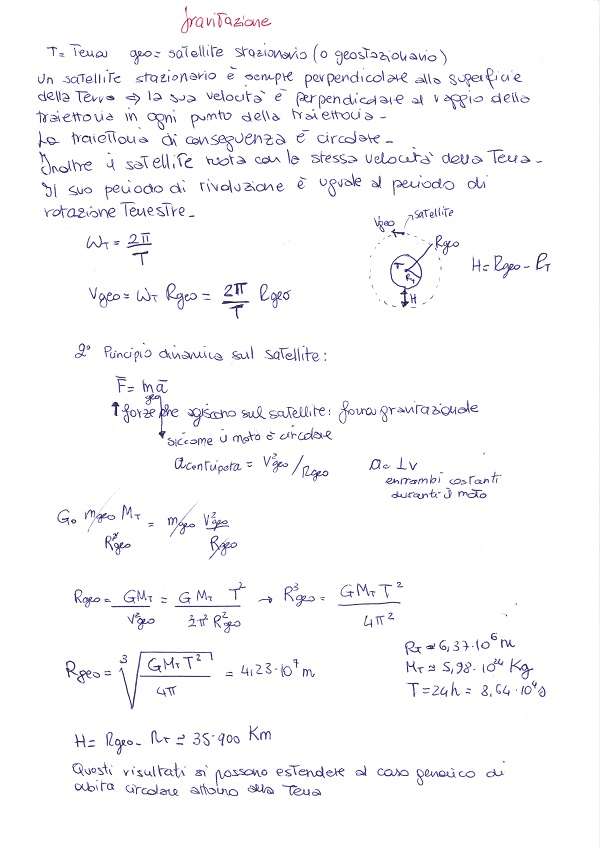 Gravitazione
T = Terra geo = satellite stazionario (o geostazionario)
Un satellite stazionario è sempre perpendicolare alla superficie
della Terra => la sua velocità è perpendicolare al raggio della
traiettoria in ogni punto della traiettoria.
La traiettoria di conseguenza è circolare.
Inoltre il satellite ruota con la stessa velocità della Terra.
Il suo periodo di rivoluzione è uguale al periodo di
rotazione Terrestre.
ω_T = 2π/T
V_geo = ω_T R_geo = 2π/T R_geo
V_geo → satellite
R_geo
T
R_T
H
H = R_geo - R_T
2° Principio dinamica sul satellite:
F = m_geo a
↑ forze che agiscono sul satellite: forza gravitazionale
siccome il moto è circolare
a centripeta = V²_geo / R_geo
a_c ⊥ v
entrambi costanti
durante il moto
G m_geo M_T / R²_geo = m_geo V²_geo / R_geo
R_geo = GM_T / V²_geo = G M_T T² / 2π² R²_geo → R³_geo = G M_T T² / 4π²
R_geo = ∛(G M_T T² / 4π) = 4,23·10⁷ m
R_T ≃ 6,37·10⁶ m
M_T ≃ 5,98·10²⁴ Kg
T = 24h = 8,64·10⁴ s
H = R_geo - R_T ≃ 35·900 Km
Questi risultati si possono estendere al caso generico di
orbita circolare attorno alla Terra